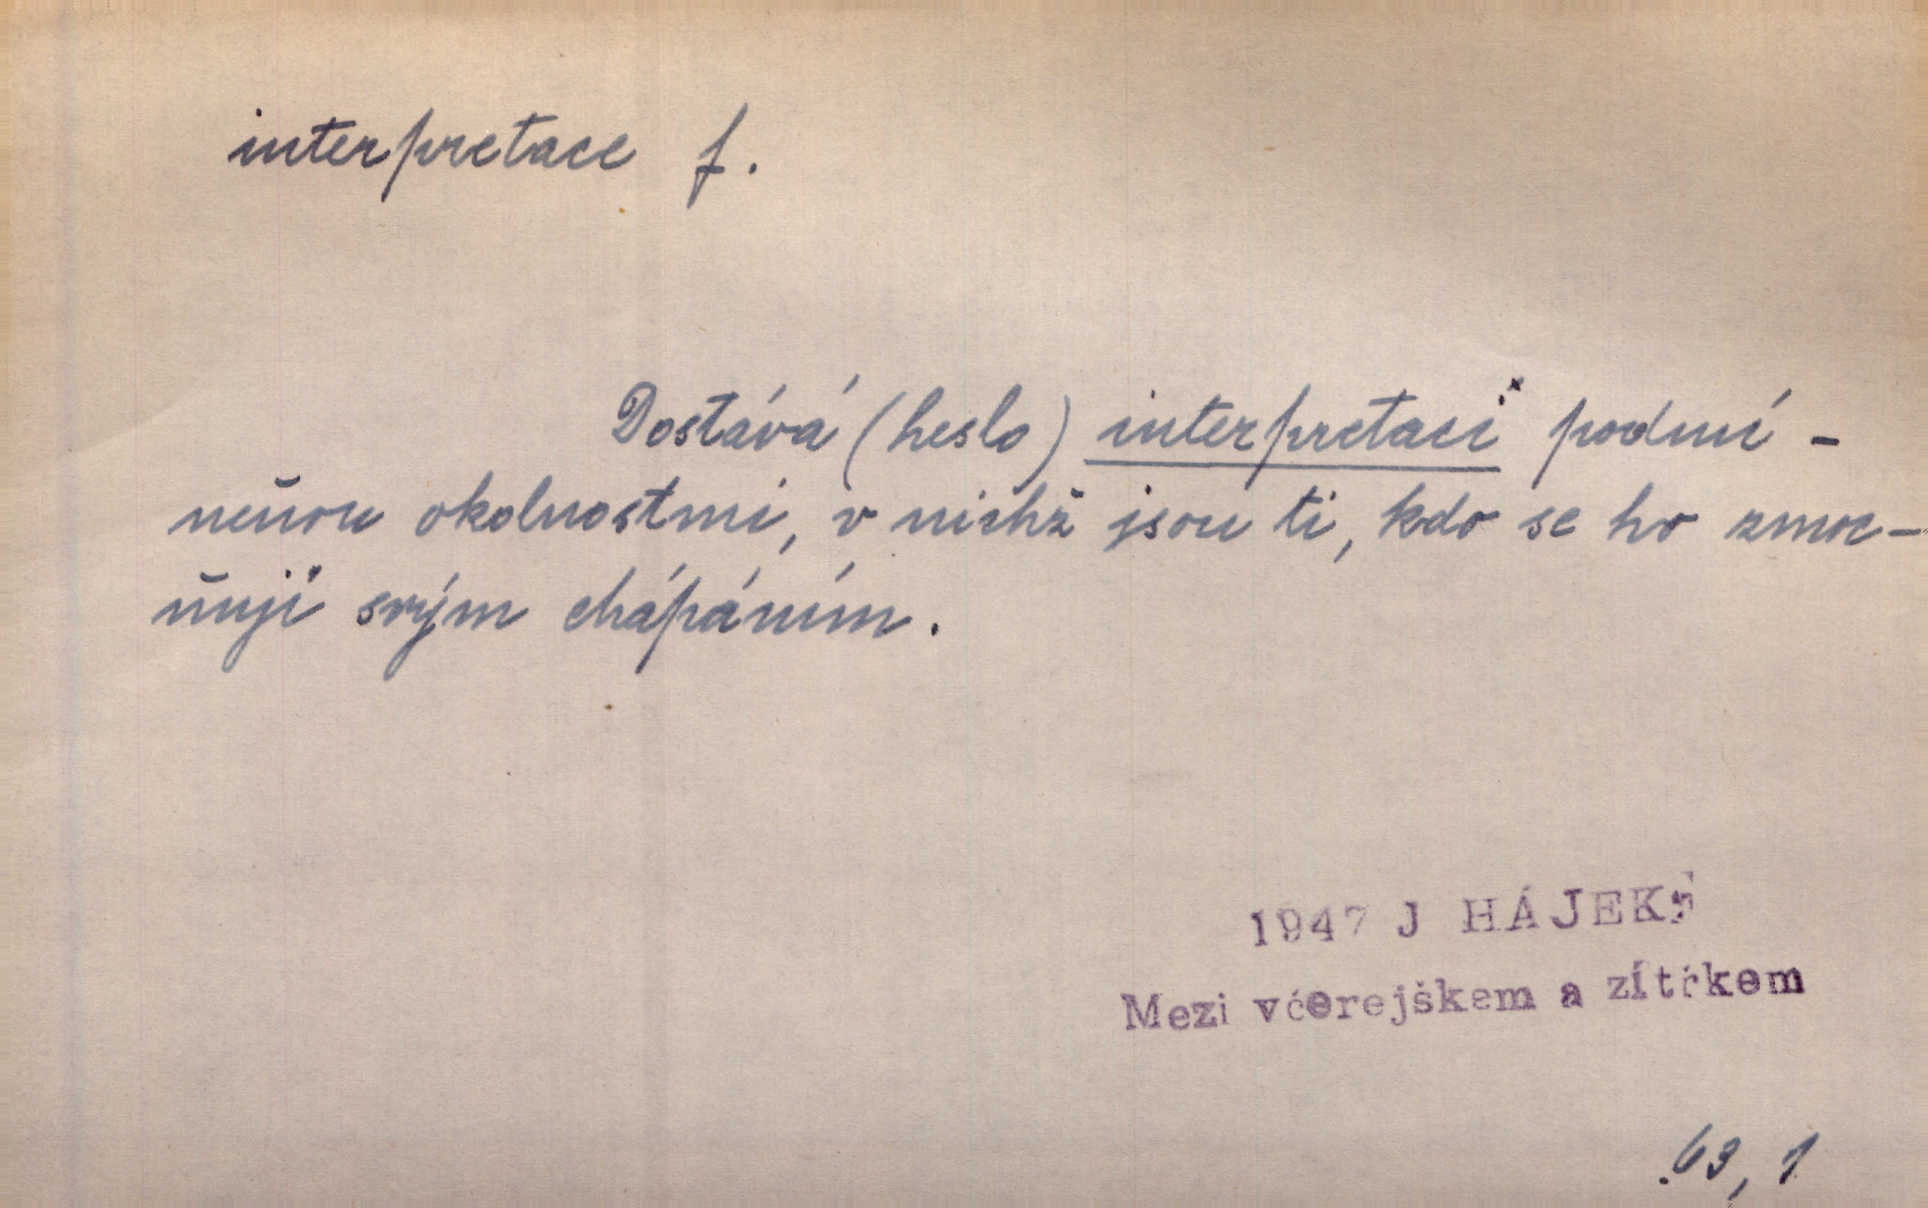 interpretace f.
Dostává (heslo) interpretaci podmí-
něnou okolnostmi, v nichž jsou ti, kdo se ho zmoc-
ňují svým chápáním.
1947 J HÁJEK
Mezi včerejškem a zítřkem
63, 1